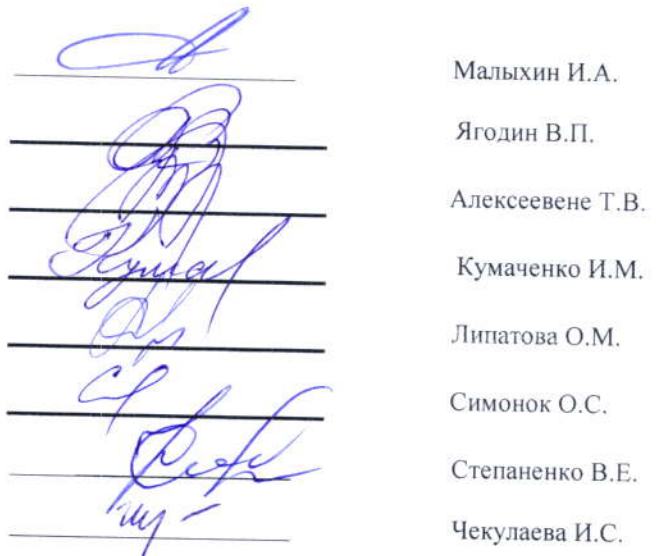 Малыхин И.А.
Ягодин В.П.
Алексеевене Т.В.
Кумаченко И.М.
Липатова О.М.
Симонок О.С.
Степаненко В.Е.
Чекулаева И.С.